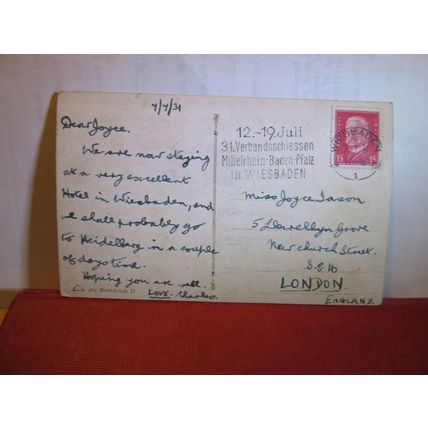 4/4/31
Dear Joyce.
We are now staying
at a very excellent
Hotel in Wiesbaden, and
we shall probably go
to Heidelberg in a couple
of days time.
Hoping you are well.
LOVE. Charles.
12.-19. Juli
34. Verbandsschiessen
Mittelrhein-Baden-Pfalz
IN WIESBADEN
WIESBADEN
1
15 15
Miss Joyce Jason
5 Llewellyn Grove
Newchurch Street.
S.E.16
LONDON.
ENGLAND.